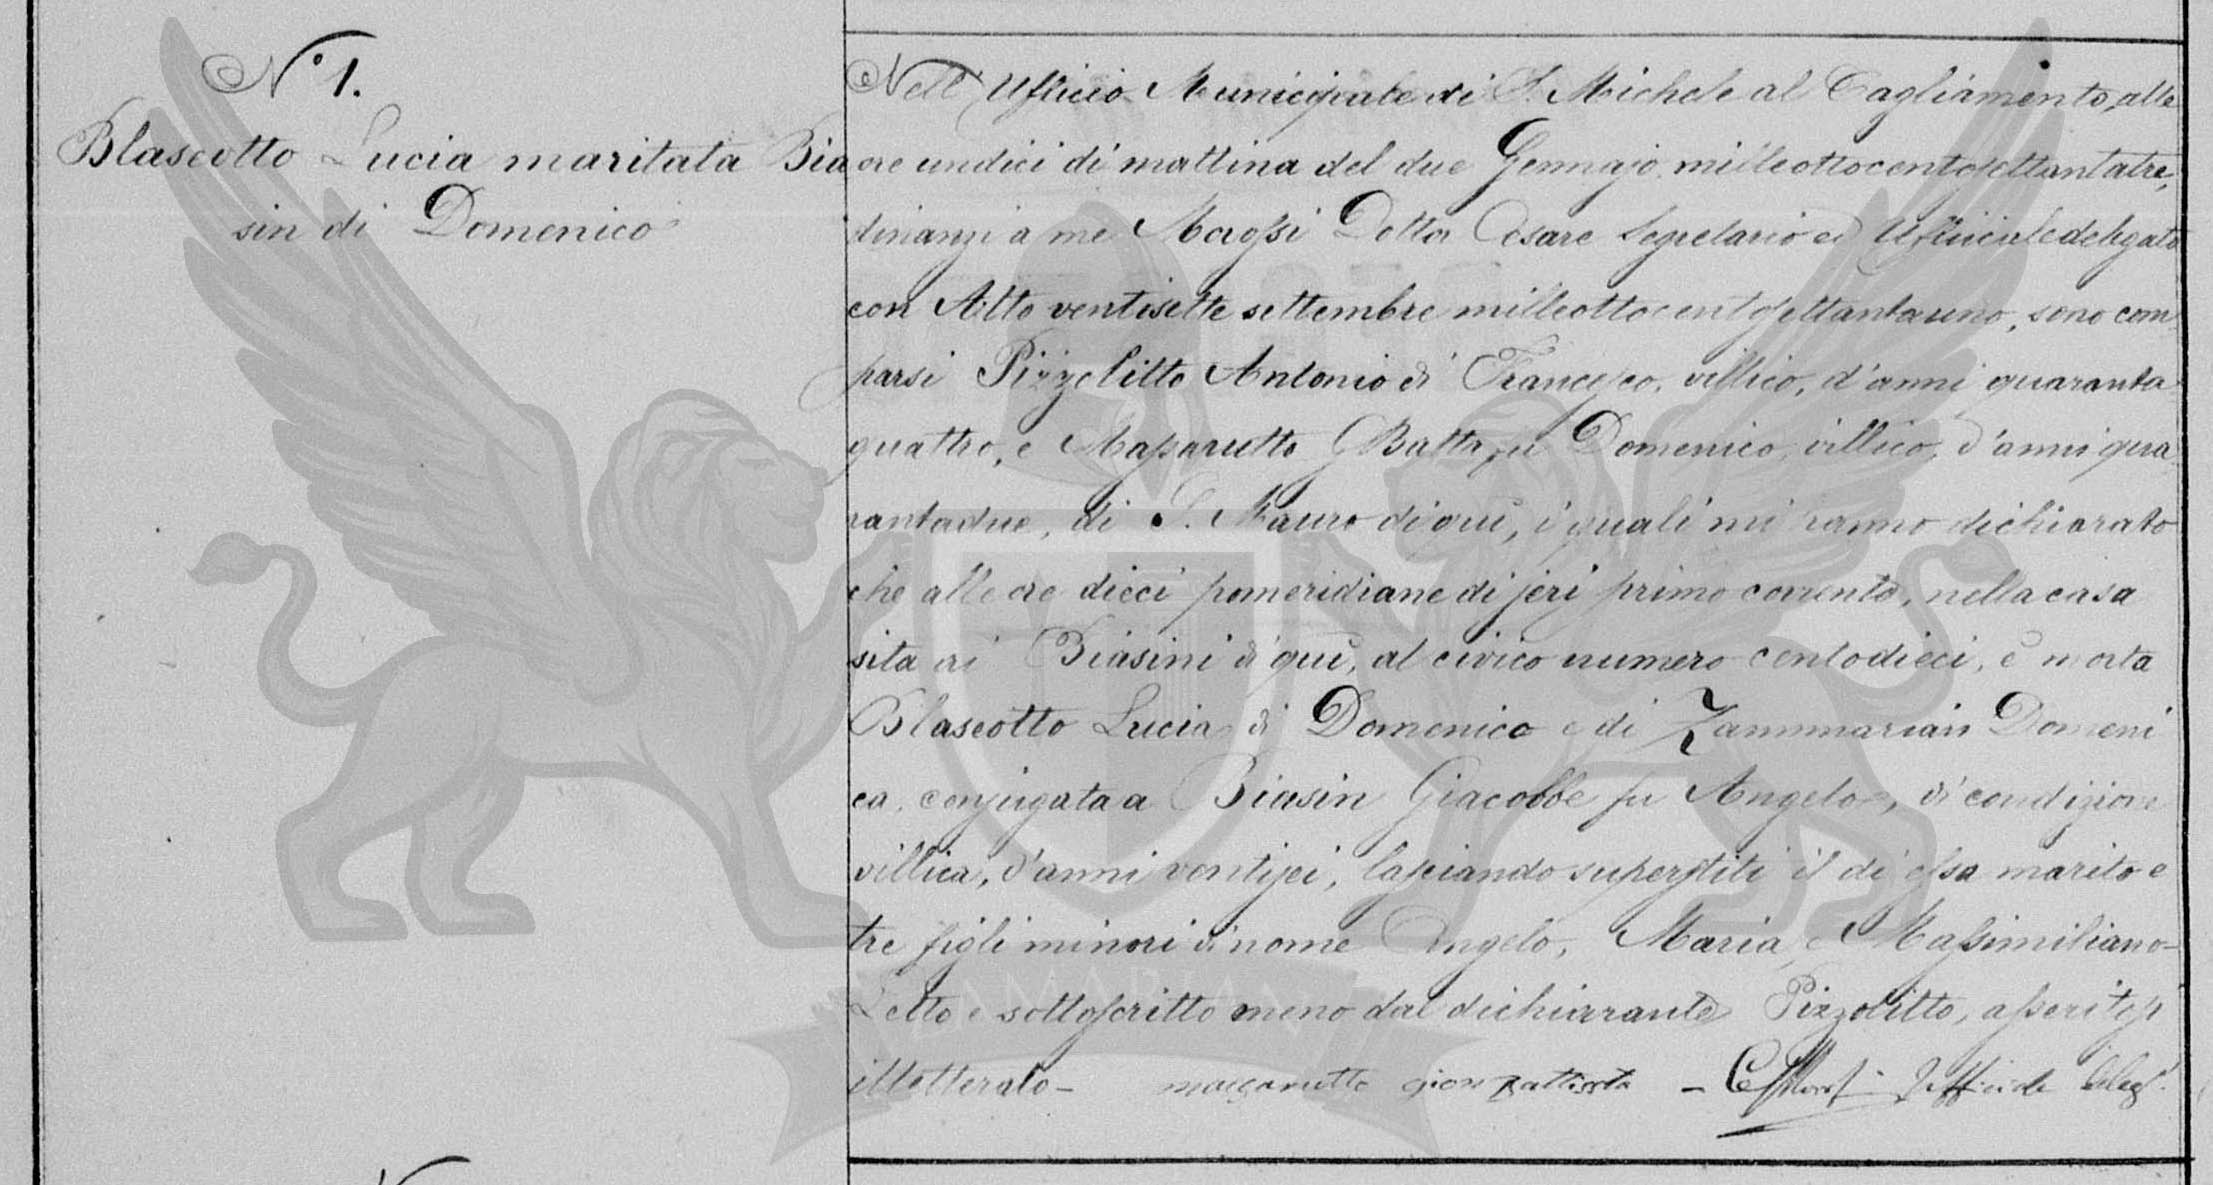 N° 1.
Blaseotto Lucia maritata Bia
sin di Domenico
Nell' Ufficio Municipale di S. Michele al Tagliamento, alle
ore undici di mattina del due Gennajo milleottocentosettantatre,
dinanzi a me Dottor Cesare Segretario ed Ufficiale delegato
con Atto ventisette settembre milleottocentosettantauno, sono com
parsi Pizzolitto Antonio di Francesco, villico, d'anni quaranta
quattro, e Massarutto GBatta fu Domenico, villico, d'anni qua
rantadue, di S. Mauro di qui, i quali mi hanno dichiarato
che alle ore dieci pomeridiane di jeri primo corrente, nella casa
sita ai Biasini di qui, al civico numero centodieci, è morta
Blaseotto Lucia di Domenico e di Zammarian Domeni
ca, conjugata a Biasin Giacobbe fu Angelo, di condizione
villica, d'anni ventisei, lasciando superstiti il di essa marito e
tre figli minori di nome Angelo, Maria e Massimiliano -
Letto e sottoscritto meno dal dichiarante Pizzolitto, asseritosi
illetterato - - Ufficiale deleg.